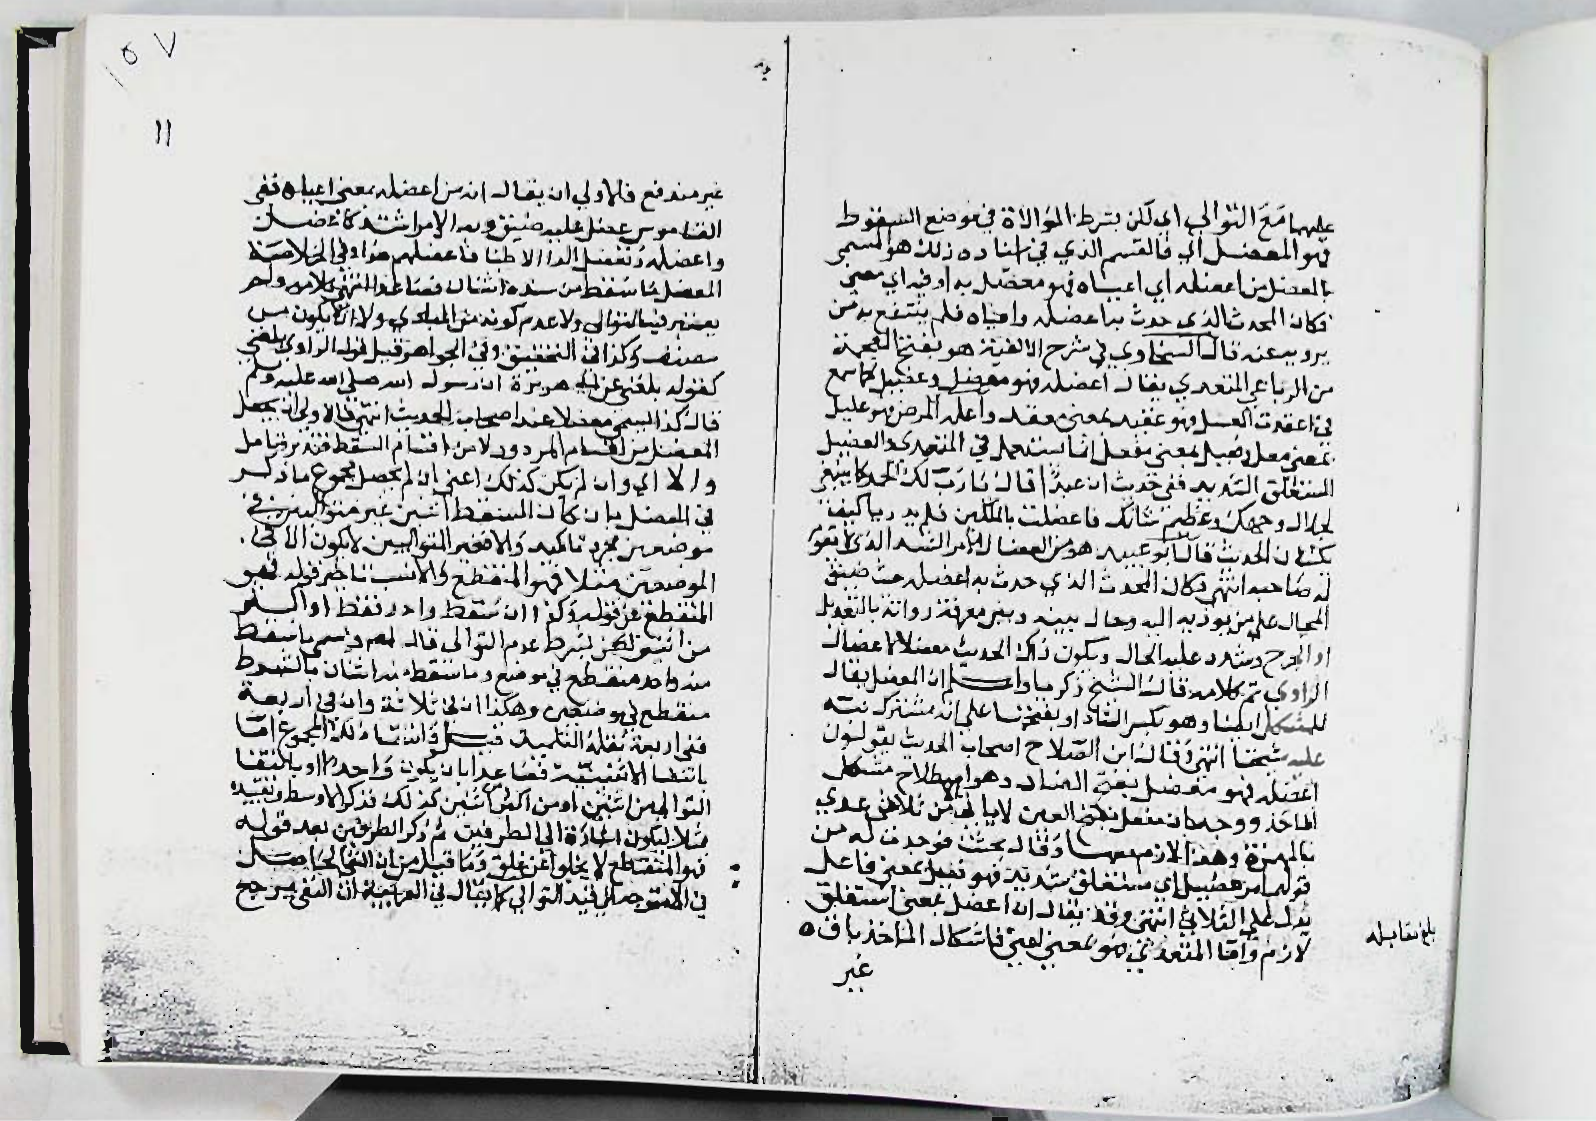 عليهما مع التوالي اي لكن بشرط الموالاة في موضع السقوط
فهو المعضل اي فالقسم الذي في اسناده ذلك هو المسمى
بالمعضل من اعضله اي اعياه فهو معضل به او فيه اي معيى
فكان المحدث الذي حدث به اعضله واعياه فلم ينتفع به من
يرويه عنه قال السخاوي في شرح الالفية هو بفتح المعجمة
من الرباعي المتعدي يقال اعضله فهو معضل وعضيل كما سمع
في اعقدت العسل فهو عقيد بمعنى معقد واعله المرض فهو عليل
بمعنى معل وفعيل بمعنى مفعل انما يستعمل في المتعدي والعضيل
المستغلق الشديد ففي حديث ان عبدا قال يا رب لك الحمد كما ينبغي
لجلال وجهك وعظيم شانك فاعضلت بالملكين فلم يدريا كيف
يكتبان الحديث قال ابو عبيد هو من العضال الامر الشديد الذي لا يقوم
له صاحبه انتهى فكان المحدث الذي حدث به اعضله حيث ضيق
المجال على من يوديه اليه وحال بينه وبين معرفة رواته بالتعديل
او الجرح وشدد عليه الحال ويكون ذاك الحديث معضلا لاعضال
الراوي تم كلامه قال الشيخ زكريا واعلم ان المعضل يقال
للمشكل ايضا وهو بكسر الضاد او بفتحها على انه مشترك نبه
عليه شيخنا انتهى وقال ابن الصلاح اصحاب الحديث يقولون
اعضله فهو معضل بفتح الضاد وهو اصطلاح مشكل
الماخذ ووجهه ان مفعل بفتح العين لا ياتي الا من ثلاثي عدي
بالهمزة وهذا لازم معها وقال بحثت فوجدت له من
قولهم امر عضيل اي مستغلق شديد فهو فعيل بمعنى فاعل
يدل على الثلاثي انتهى وقد يقال ان اعضل بمعنى استغلق
لازم واما المتعدي فهو بمعنى اعيى فاشكال الماخذ باق ه
غير
بلغ مقابلة
١٥٧
١١
غير مندفع فالاولى ان يقال انه من اعضله بمعنى اعياه ففي
القاموس عضل عليه ضيق وبه الامر اشتد كاعضل
واعضله وتعضل الداء الاطباء واعضلهم هذا وفي الخلاصة
المعضل ما سقط من سنده اثنان فصاعدا انتهى كلامه ولم
يعتبر فيه التوالي ولا عدم كونه من المبادي ولا ان يكون من
مصنف وكذا في التحقيق وفي الجواهر قيل قول الراوي بلغني
كقوله بلغني عن ابي هريرة ان رسول الله صلى الله عليه وسلم
قال كذا يسمى معضلا عند اصحاب الحديث انتهى فالاولى ان يجعل
المعضل من اقسام المردود لا من اقسام السقط فتدبر وتامل
والا اي وان لم يكن كذلك اعني ان لم يحصل مجموع ما ذكر
في المعضل بان كان السقط اثنين غير متواليين في
موضعين مجرد تاكيد والا فغير المتواليين لا يكون الا في
الموضعين مثلا فهو المنقطع والانسب تاخير قوله فهو
المنقطع عن قوله وكذا ان سقط واحد فقط او اكثر
من اثنين لكن بشرط عدم التوالي قال بعضهم ويسمى ما سقط
منه واحد منقطع في موضع وما سقط منه اثنان بالشرط
منقطع في موضعين وهكذا ان في ثلاثة وان في اربعة
ففي اربعة نقله التلميذ فيه انتفاء ذلك المجموع اما
بانتفاء الاثنينية فصاعدا بان يكون واحدا او بانتفاء
التوالي من اثنين او من اكثر من اثنين كذلك فذكر الاوسط وقيده
مثلا ليكون اشارة الى الطرفين ثم ذكر الطرفين بعد قوله
فهو المنقطع لا يخلو عن قلق وما قيل من ان النفي الحاصل
في الا متوجه الى قيد التوالي كما يقال في العربية ان النفي يرجع